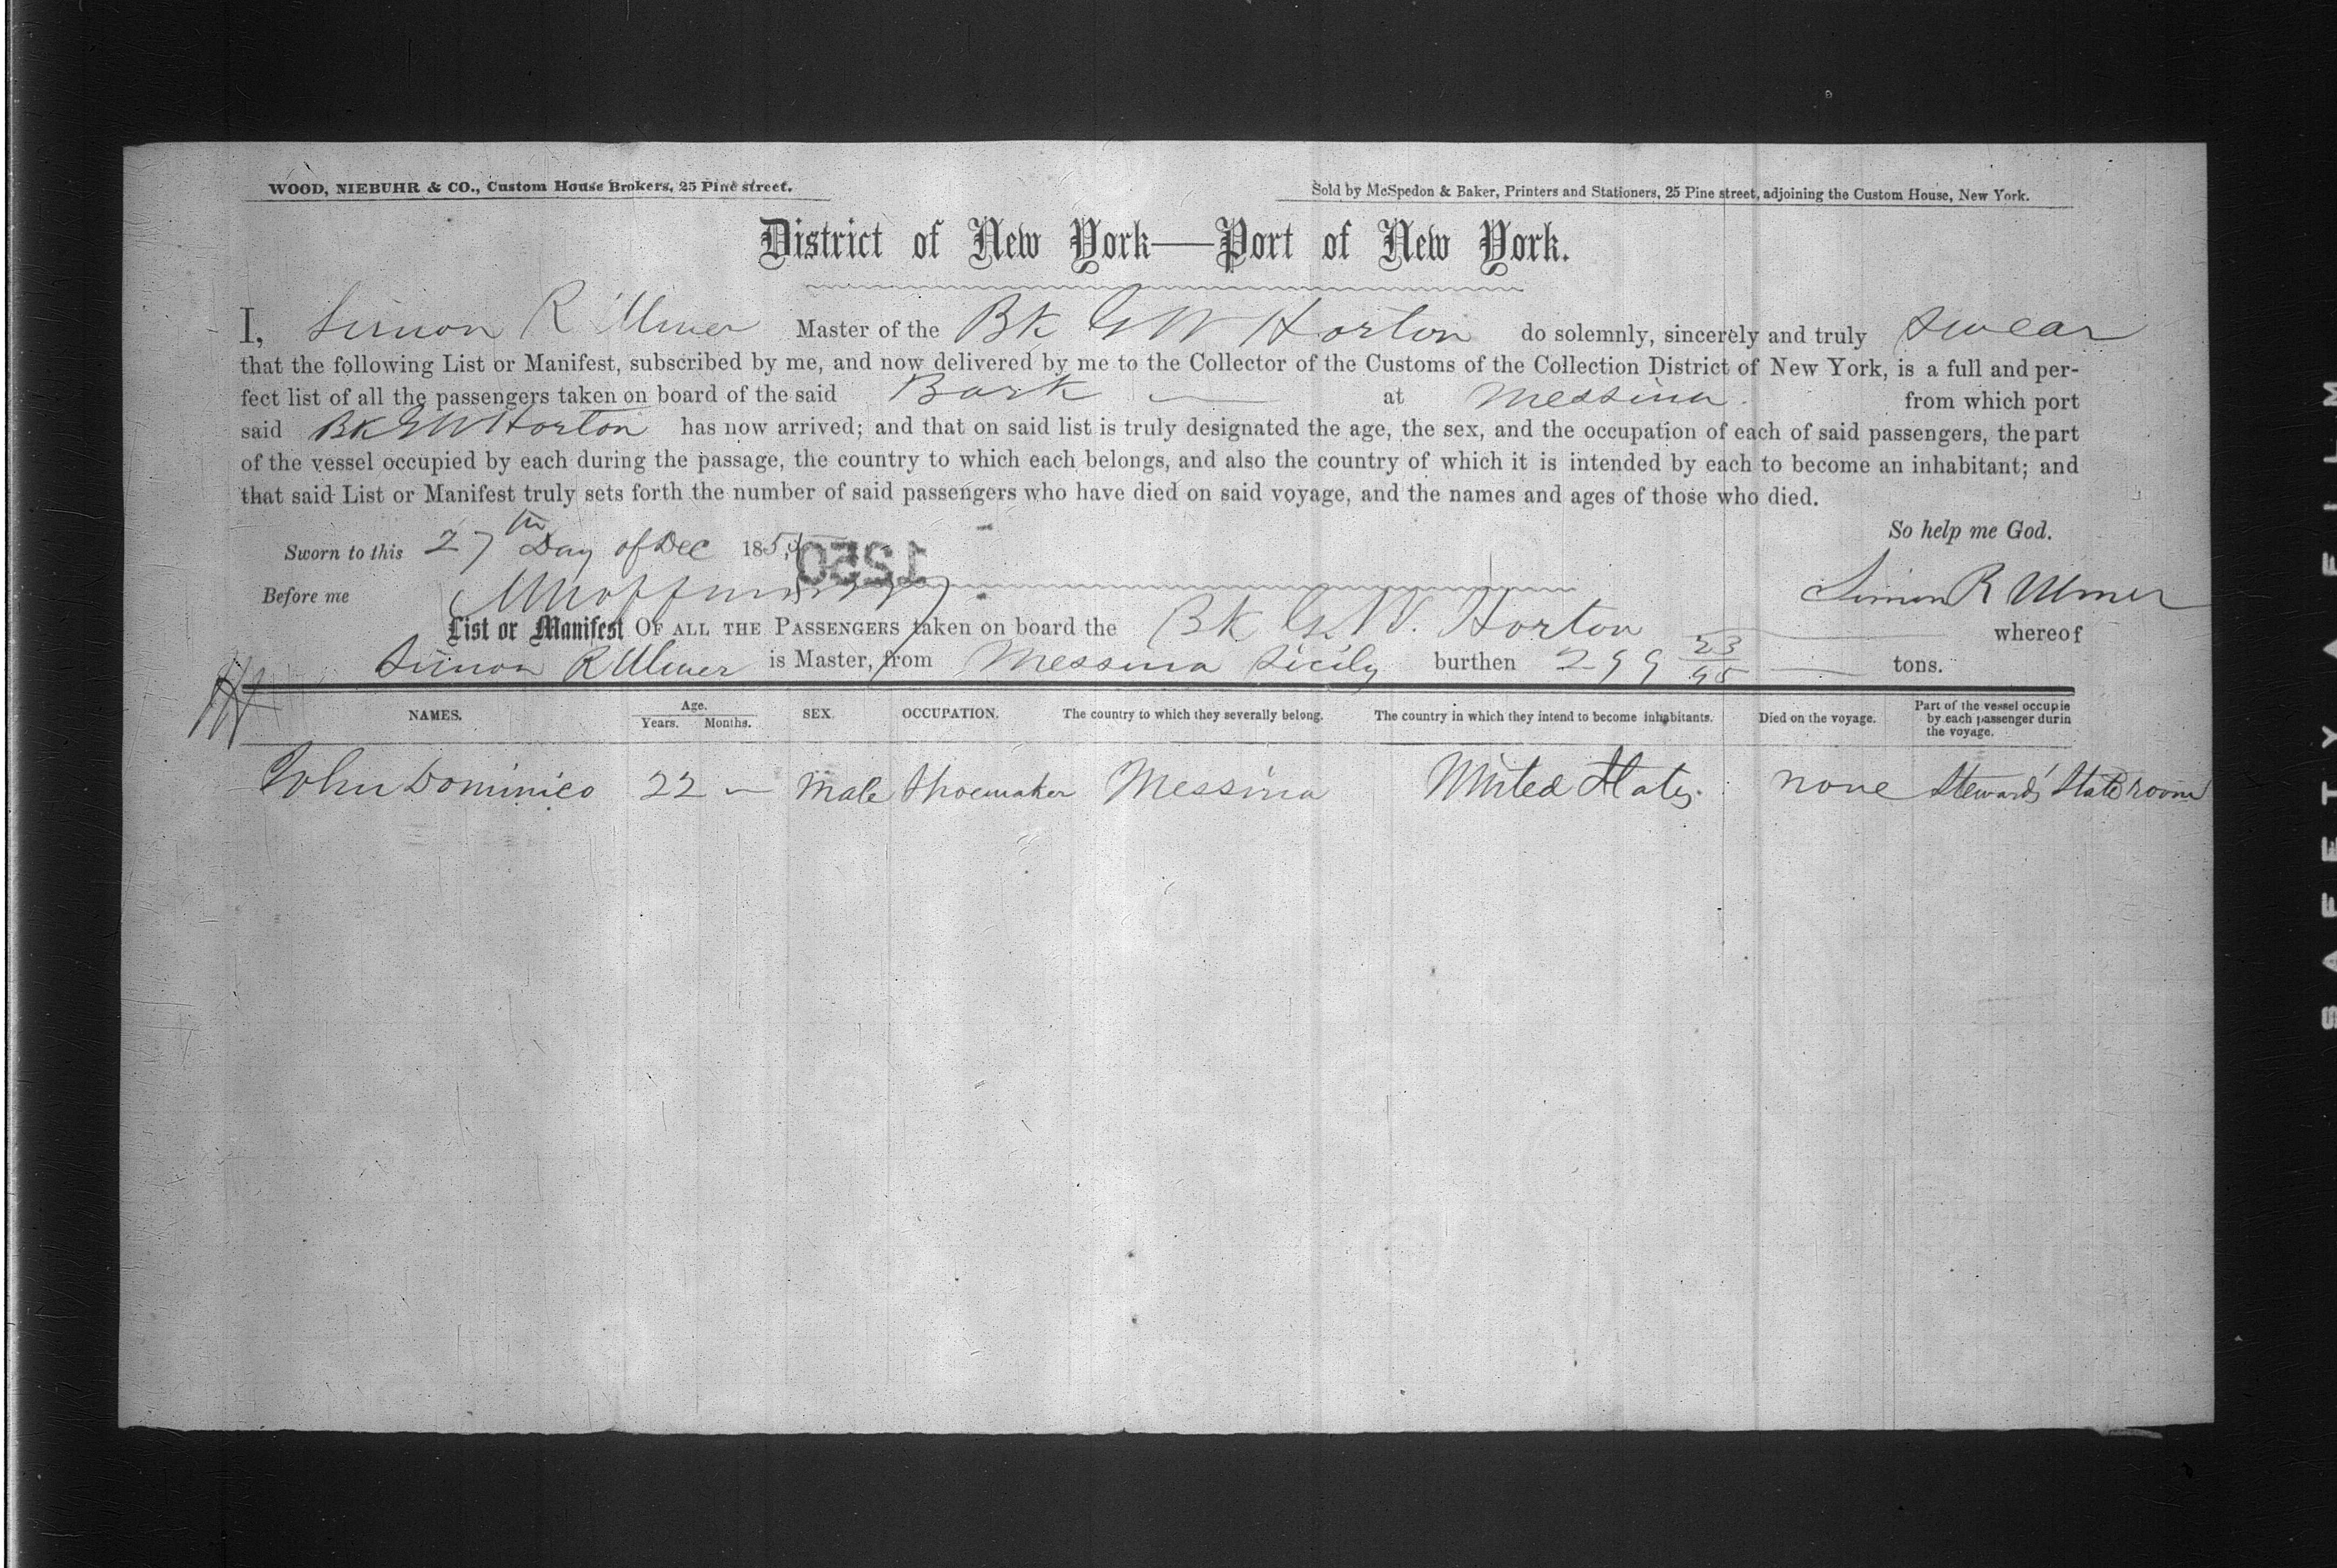 WOOD, NIEBUHR & CO., Custom House Brokers, 25 Pine street.
Sold by McSpedon & Baker, Printers and Stationers, 25 Pine street, adjoining the Custom House, New York.
District of New York—Port of New York.
I, Simon R Ulmer Master of the Bk G W Horton do solemnly, sincerely and truly swear
that the following List or Manifest, subscribed by me, and now delivered by me to the Collector of the Customs of the Collection District of New York, is a full and per-
fect list of all the passengers taken on board of the said Bark at Messina from which port
said Bk G W Horton has now arrived; and that on said list is truly designated the age, the sex, and the occupation of each of said passengers, the part
of the vessel occupied by each during the passage, the country to which each belongs, and also the country of which it is intended by each to become an inhabitant; and
that said List or Manifest truly sets forth the number of said passengers who have died on said voyage, and the names and ages of those who died.
So help me God.
Sworn to this 27th Day of Dec 185
1520
Before me Simon R Ulmer
List or Manifest OF ALL THE PASSENGERS taken on board the Bk G. W. Horton whereof
Simon R Ulmer is Master, from Messina Sicily burthen 299 23/95 tons.
NAMES. Age. Years. Months. SEX. OCCUPATION. The country to which they severally belong. The country in which they intend to become inhabitants. Died on the voyage. Part of the vessel occupie by each passenger durin the voyage.
John Dominico 22 — Male Shoemaker Messina United States. none Steward's State room
SAFETY FILM